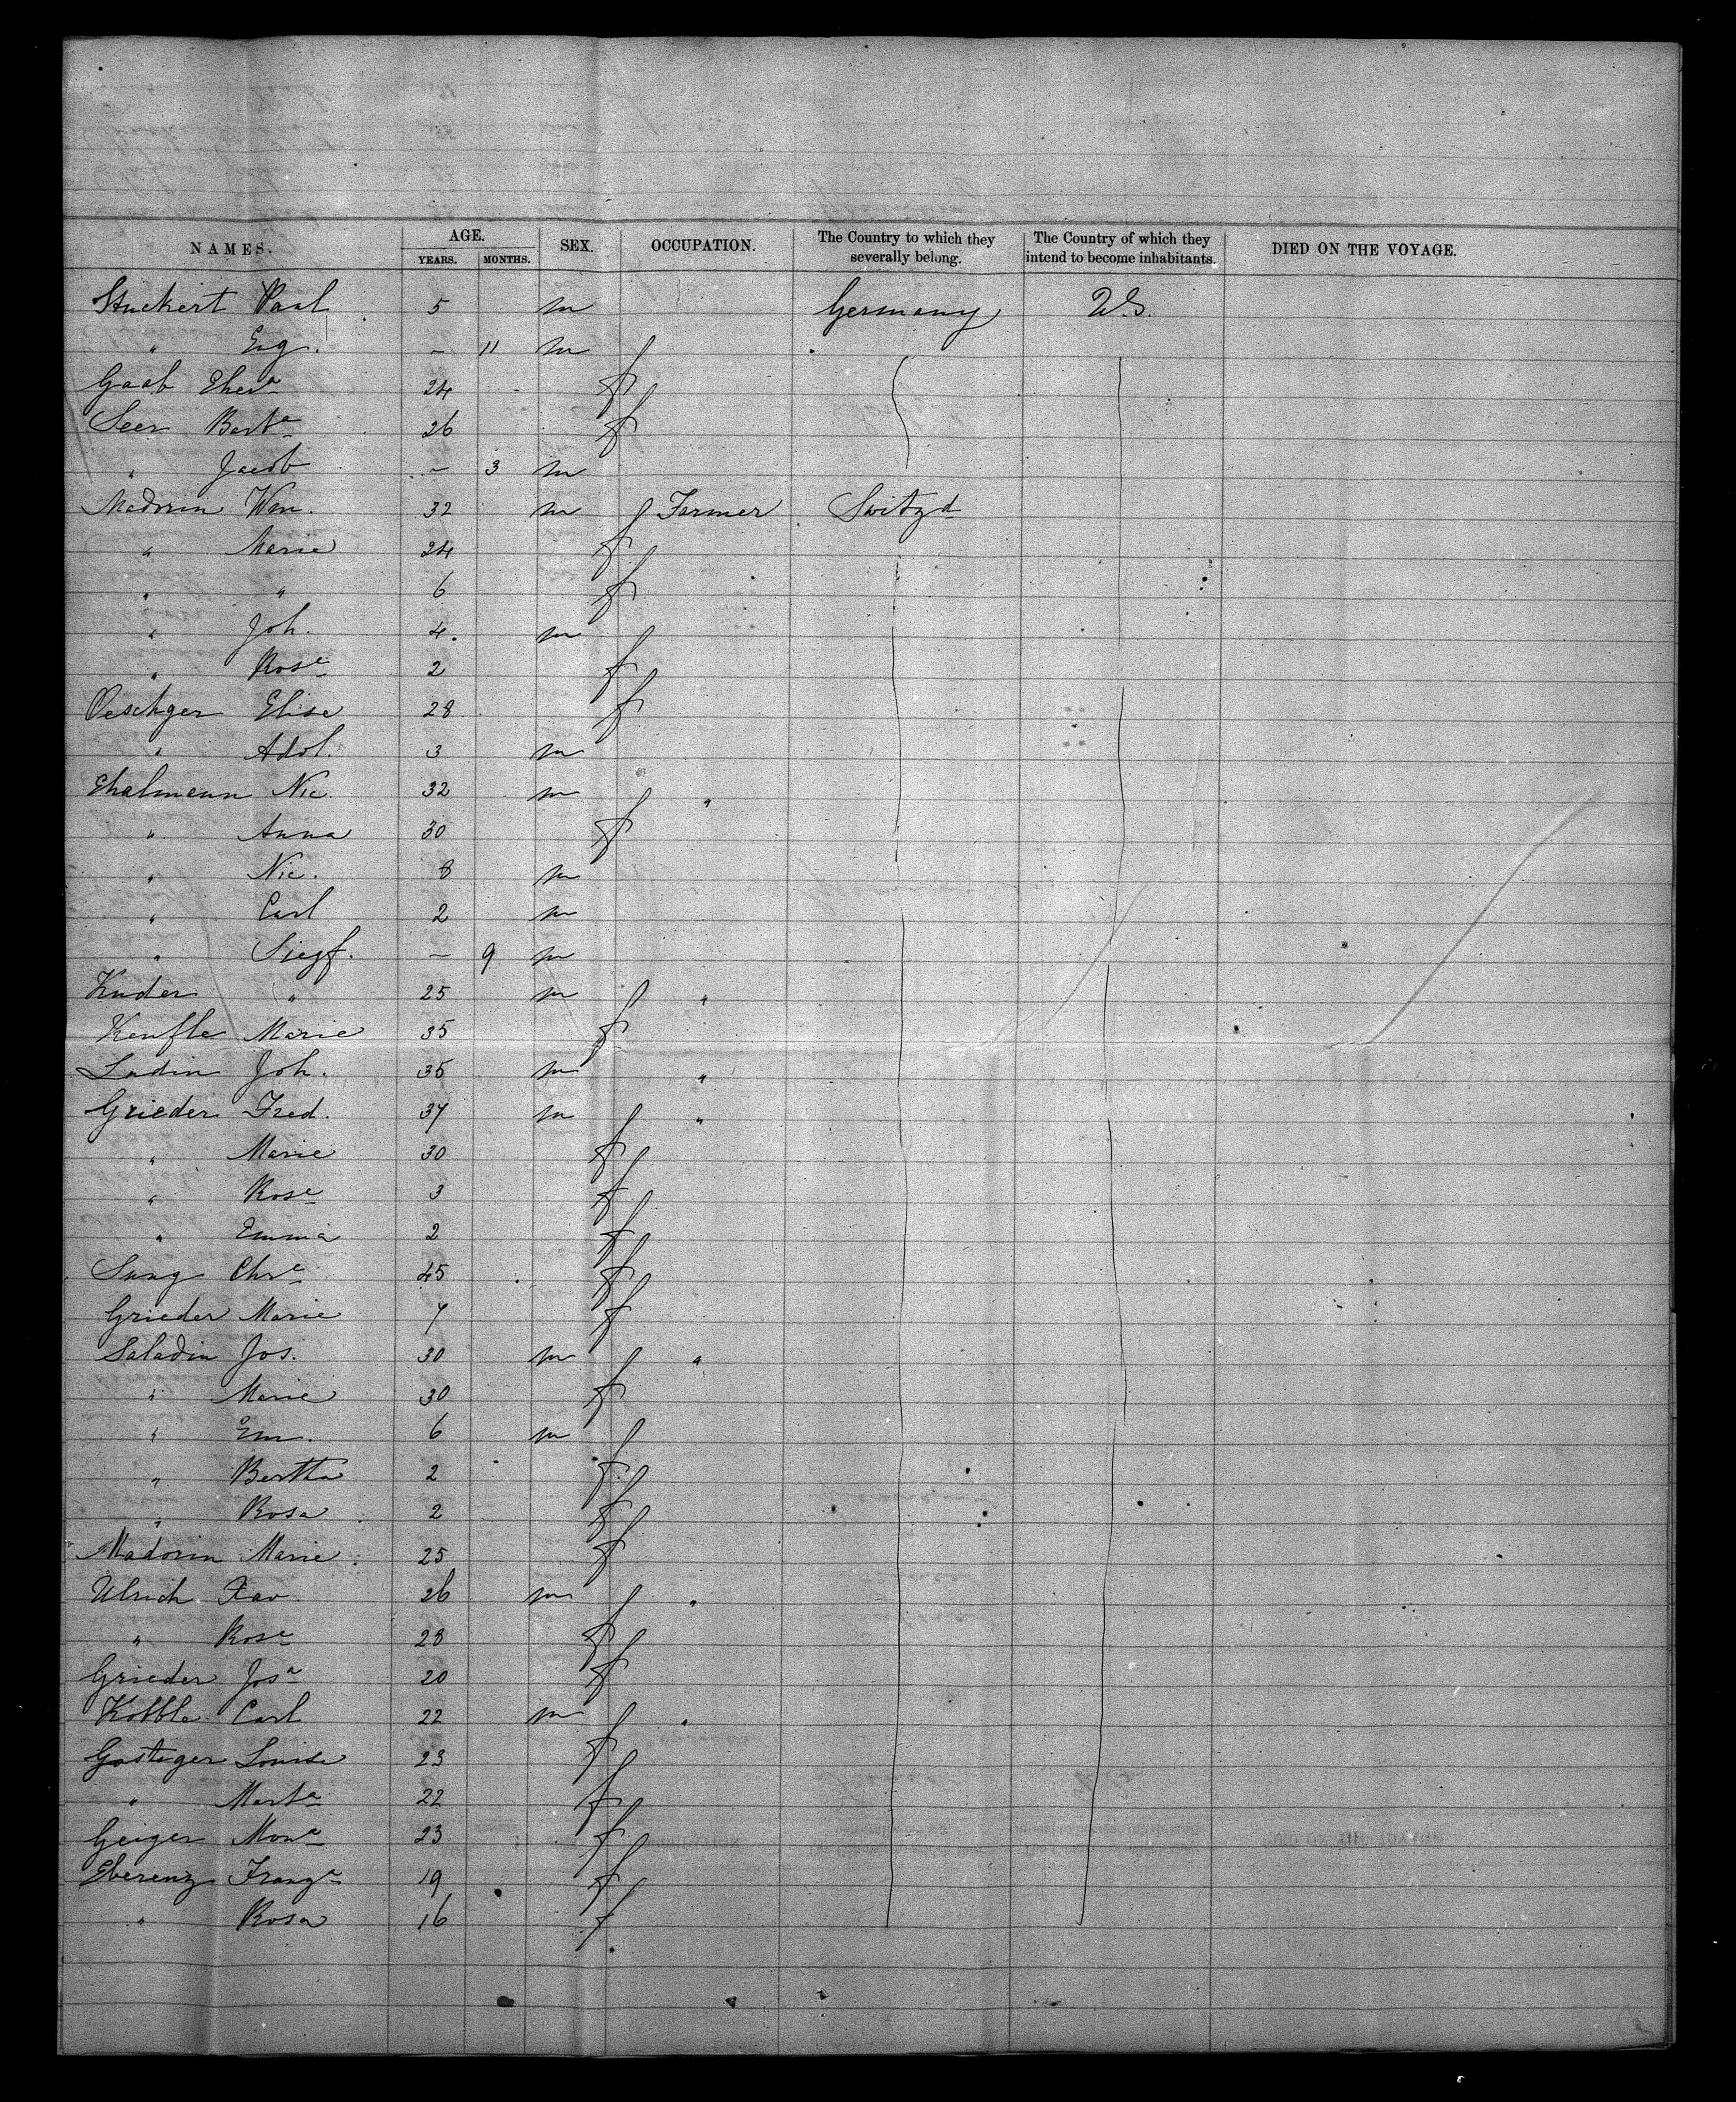 NAMES. AGE. YEARS. MONTHS. SEX. OCCUPATION. The Country to which they severally belong. The Country of which they intend to become inhabitants. DIED ON THE VOYAGE.
Stuckert Paul 5 m Germany U.S.
" Eug. – 11 m
Gaab Ther^a 24 f
Seer Bert^a 26 f
" Jacob – 3 m
Madorin Wm. 32 m Farmer Switz^d
" Marie 24 f
" " 6 f
" Joh. 4. m
" Ros^a 2 f
Oeschger Elise 28 f
" Adol. 3 m
Thalmann Nic. 32 m "
" Anna 30 f
" Nic. 8 m
" Carl 2 m
" Siegf. – 9 m
Kuder " 25 m "
Kenfle Marie 35 f
Ladin Joh. 35 m "
Grieder Fred. 37 m "
" Marie 30 f
" Ros^a 3 f
" Emma 2 f
Sung Chr^e 45 f
Grieder Marie 7 f
Saladin Jos. 30 m "
" Marie 30 f
" Em. 6 m
" Bertha 2 f
" Rosa 2 f
Madorin Marie 25 f
Ulrich Xav. 26 m "
" Ros^a 28 f
Grieder Jos^a 20 f
Kolble Carl 22 m "
Gasteger Louise 23 f
" Mart^a 22 f
Geiger Mon^a 23 f
Eberenz Franz^a 19 f
" Rosa 16 f